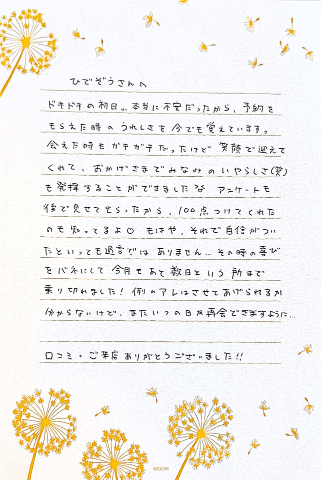 ひでぞうさんへ
ドキドキの初日…本当に不安だったから、予約を
もらえた時のうれしさを今でも覚えています。
会えた時もガチガチだったけど笑顔で迎えて
くれて、おかげさまでみなみのいやらしさ(笑)
を発揮することができました アンケートも
後で見せてもらったから、100点つけてくれた
のも知ってるよ もはや、それで自信がつい
たといっても過言ではありません…その時の喜び
をバネにして今月もあと数日という所まで
乗り切れました！例のアレはさせてあげられるか
分からないけど、またいつの日か再会できますように…
口コミ・ご来店ありがとうございました!!
MOON